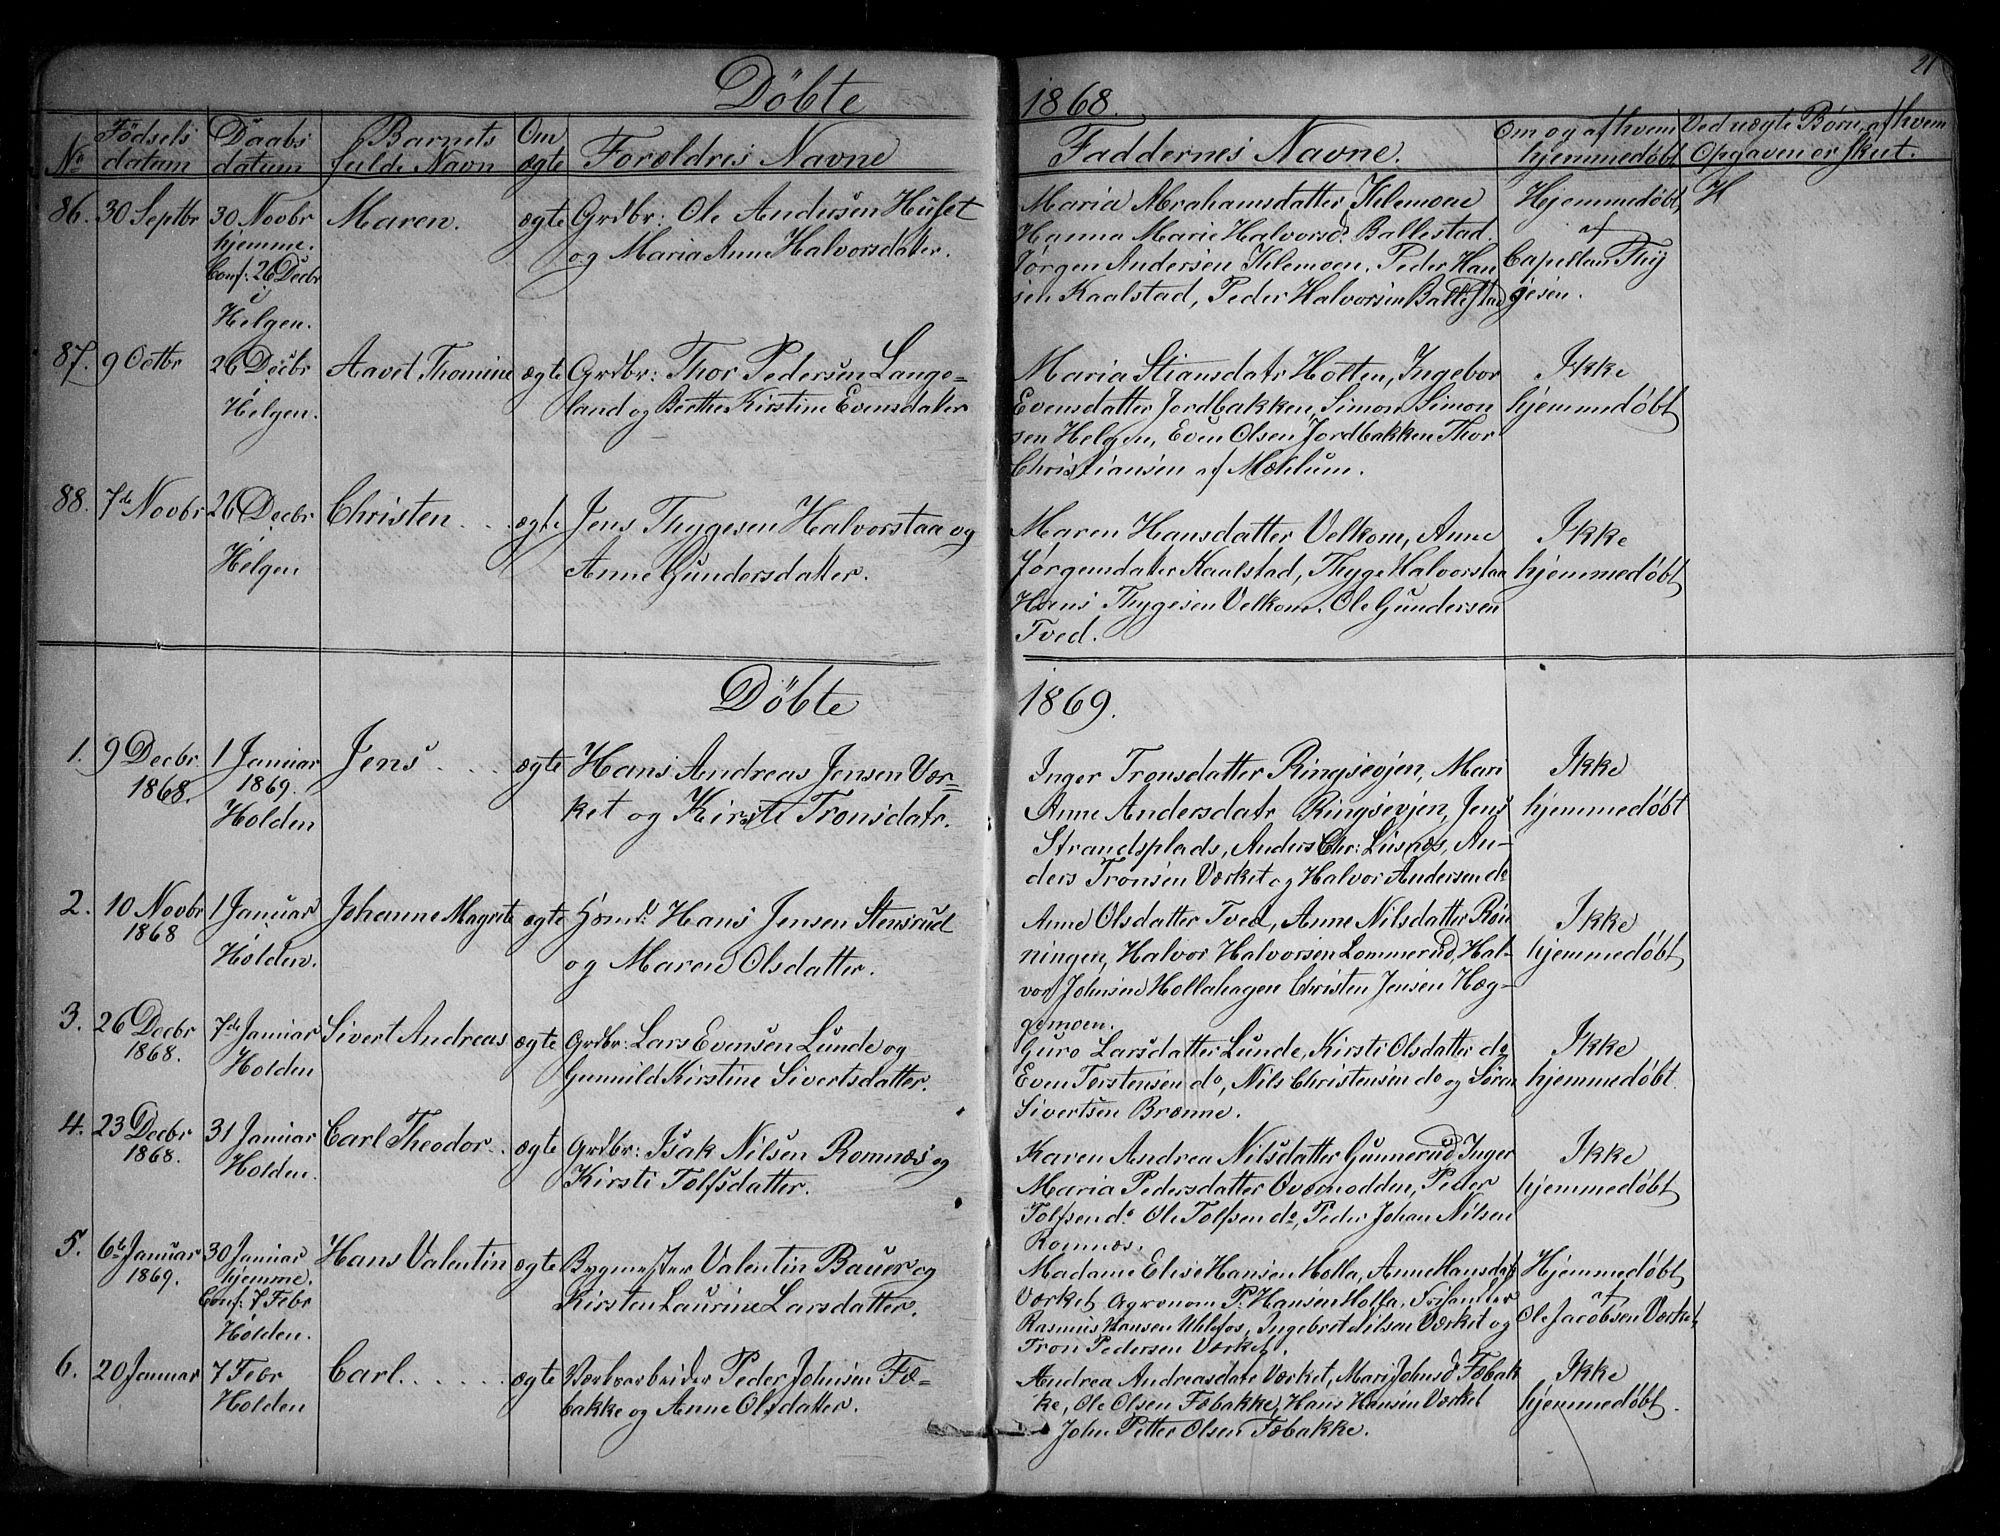 21
Döbte
1868.
No
Födsels datum
Daabs datum
Barnets fulde Navn
Om ægte
Forældres Navne
Faddernes Navne.
Om og af hvem hjemmedøbt
Ved uægte Børn, af hvem Opgaven er skut.
86. 30 Septbr
30 Novbr
hjemme.
Conf: 26 Decbr
i
Helgen.
Maren.
ægte
Grdbr: Ole Andersen Huset
og Maria Anne Halvorsdatter.
Maria Abrahamsdatter Hilemoene
Hanna Marie Halvorsd: Ballestad.
Jørgen Andersen Hilemoen. Peder Han
sen Kaalstad, Peder Halvorsen Ballestad
Hjemmedøbt
af
Capellan Thy
gesen.
H
87. 9 Octbr
26 Decbr
i
Helgen.
Aavet Thomine
ægte
Grdbr: Thor Pedersen Lange-
land og Berthe Kirstine Evensdatter
Maria Stiansdatr Hotten, Ingebor
Evensdatter Jordbakken, Simon Simon
sen Helgen, Even Olsen Jordbakken Thor
Christiansen af Mæhlum.
Ikke
hjemmedøbt
88. 7de Novbr
26 Decbr
Helgen
Christen
ægte
Jens Thygesen Halvorstaa og
Anne Gundersdatter.
Maren Hansdatter Velkom, Anne
Jørgensdatter Kaalstad, Thyge Halvorstaa
Hans Thygesen Velkom. Ole Gundersen
Tved.
Ikke
hjemmedøbt
Döbte
1869.
1. 9 Decbr
1868.
1 Januar
1869.
Holden
Jens
ægte
Hans Andreas Jensen Vær-
ket og Kirsti Tronsdatr.
Inger Tronsdatter Ringsevjen, Mari
Anne Andersdatr Ringsevjen, Jens
Strandsplads, Anders Chr: Lusnæs, An-
ders Tronsen Værket og Halvor Andersen do
Ikke
hjemmedøbt
2. 10 Novbr
1868
1 Januar
Holden.
Johanne Magrete
ægte
Hans Jensen Stensrud
og Maren Olsdatter.
Anne Olsdatter Tved, Anne Nilsdatter Røn
ningen, Halvor Halvorsen Lommerud, Hal-
vor Johnsen Hollahagen Christen Jensen Hæg-
gemoen.
Ikke
hjemmedøbt
3. 26 Decbr
1868.
7de Januar
Holden
Sivert Andreas
ægte
Grdbr: Lars Evensen Lunde og
Gunnild Kirstine Sivertsdatter.
Guro Larsdatter Lunde, Kirsti Olsdatter do
Even Torstensen do, Nils Christensen do og Søren
Sivertsen Brænne.
Ikke
hjemmedøbt.
4. 23 Decbr
1868.
31 Januar
Holden.
Carl Theodor
ægte
Grdbr: Isak Nilsen Romnæs og
Kirsti Tolfsdatter.
Karen Andrea Nilsdatter Gunnerud Inger
Maria Pedersdatter Overnodden, Peder
Tolfsen do. Ole Tolfsen do, Peder Johan Nilsen
Romnæs.
Ikke
hjemmedøbt
5. 6te Januar
1869.
30 Januar
hjemme.
Conf: 7 Febr
Holden.
Hans Valentin
ægte
Bygmester Valentin Bauer og
Kirsten Laurine Larsdatter.
Madame Elise Hansen Holla, Anne Hansdatr
Værket Agronom P: Hansen Holla,
Rasmus Hansen Uhlefos, Ingebret Nilsen Værket og
Tron Pedersen Værket.
Hjemmedøbt
af
Ole Jacobsen Værket
6. 20 Januar
7 Febr
Holden
Carl
ægte
Værksarbeider Peder Johnsen Fæ-
bakke og Anne Olsdatter.
Andrea Andreasdatr Værket, Mari Johnsd Fæbak
ke, Ole Olsen Fæbakke, Hans Hansen Værket
John Petter Olsen Fæbakke.
Ikke
hjemmedøbt.